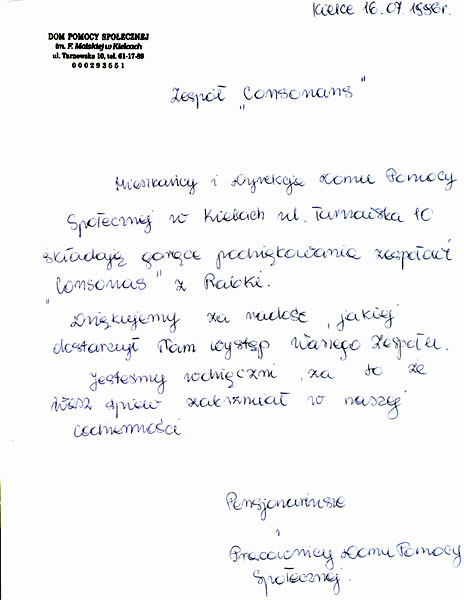 Kielce 16.07.1996r.
DOM POMOCY SPOŁECZNEJ
im. F. Malskiej w Kielcach
ul. Tarnowska 10, tel. 61-17-89
000293551
Zespół „Consonans"
Mieszkańcy i Dyrekcja Domu Pomocy
Społecznej w Kielcach ul. Tarnowska 10
składają gorące podziękowania zespołowi
"Consonas" z Rabki.
Dziękujemy za radość, jakiej
dostarczył Nam występ Waszego Zespołu.
Jesteśmy wdzięczni, za to że
Wasz śpiew zabrzmiał w naszej
codzienności
Pensjonariusze
i
Pracownicy Domu Pomocy
Społecznej.